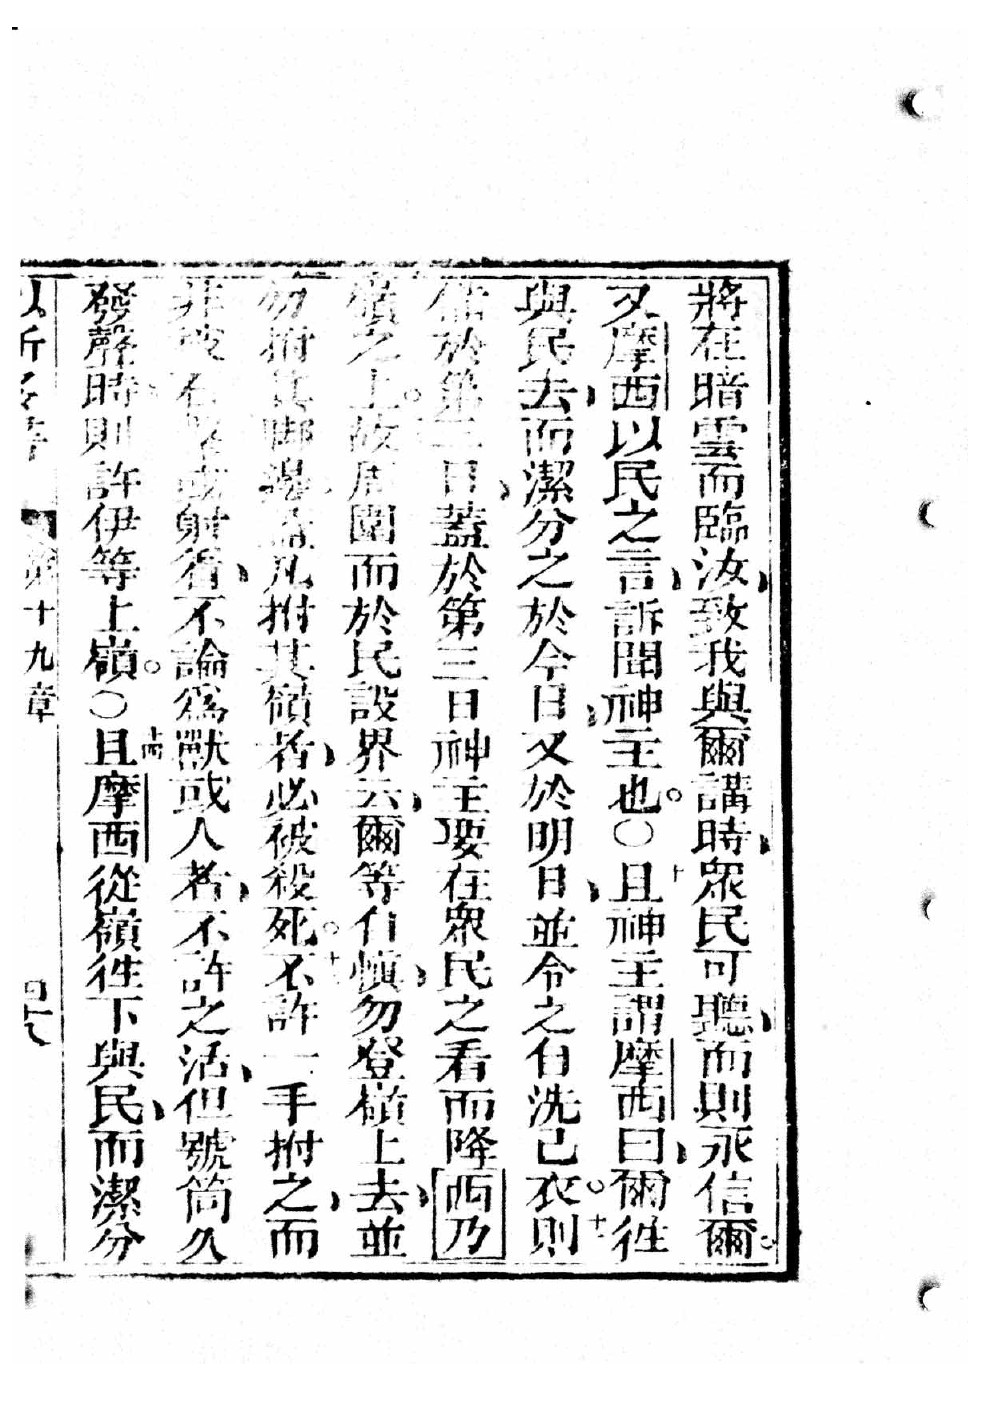 將在暗雲而臨汝、致我與爾講時、眾民可聽、而則永信爾。
又摩西以民之言、訴聞神主也。○十且神主謂摩西曰、爾徃
與民去、而潔分之於今日、又於明日、並令之自洗己衣。十一則
備於第三日、蓋於第三日神主要在眾民之看而降西乃
嶺之上。故周圍而於民設界云、爾等自慎、勿登嶺上去、並
勿拊其脚邊、蓋凡拊其嶺者、必被殺死。十三不許一手拊之、而
非被石 或射着、不論為獸或人者、不許之活、但號筒久
發聲時、則許伊等上嶺。○十四且摩西從嶺徃下與民、而潔分
第十九章 四十八